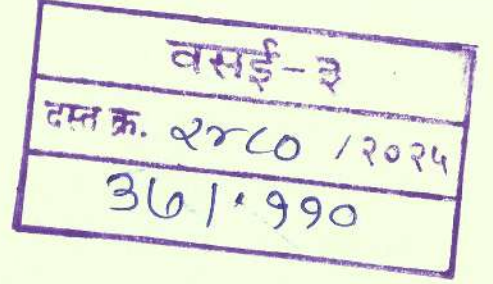 वसई-३
दस्त क्र. २४८० /२०२५
३७/११०